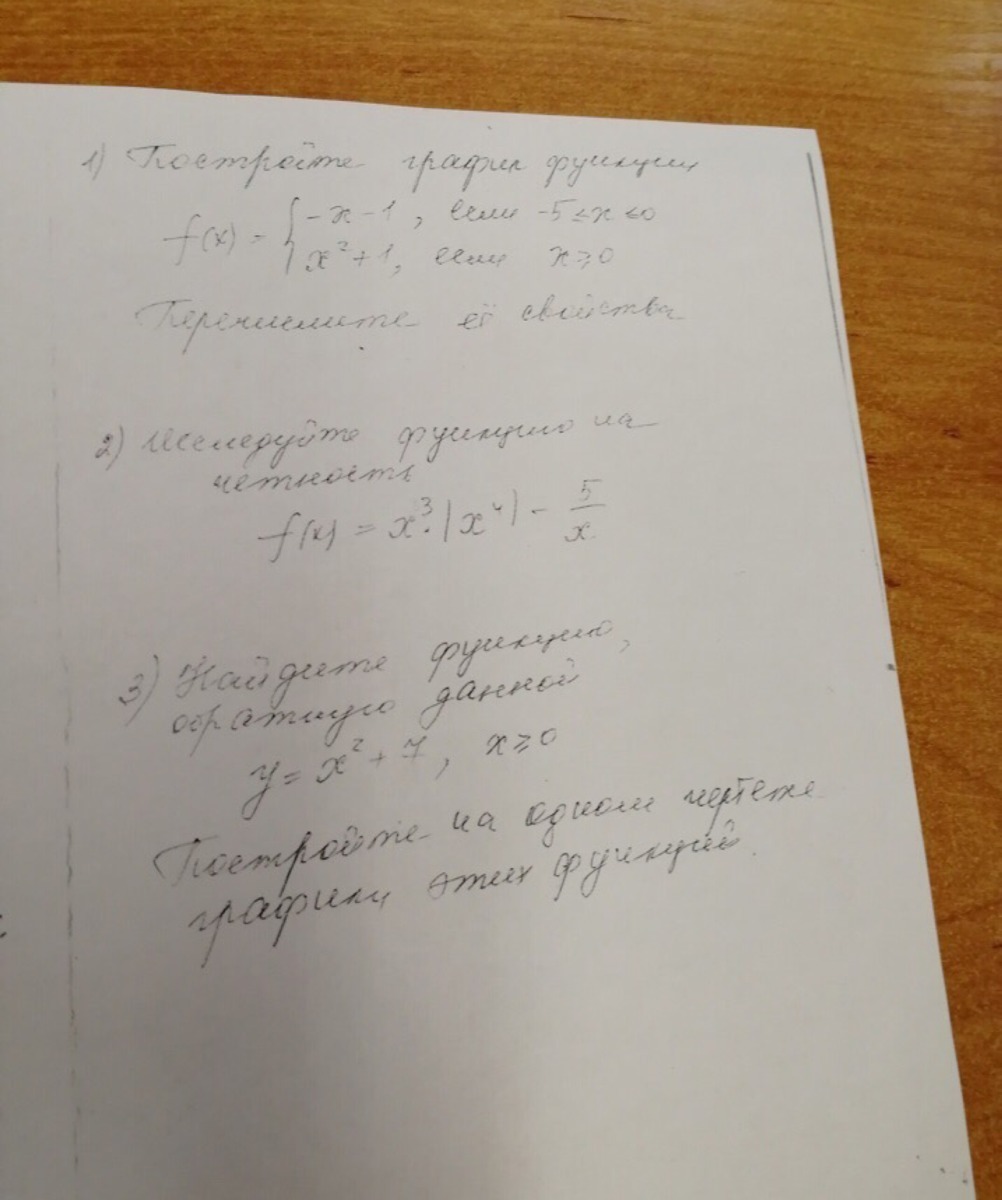 1) Постройте график функции
f(x) = { -x-1, если -5≤x≤0
x²+1, если x≥0
Перечислите её свойства
2) Исследуйте функцию на
четность
f(x) = x³·|x⁴| - 5/x
3) Найдите функцию,
обратную данной
y = x² + 7, x≥0
Постройте на одном чертеже
графики этих функций